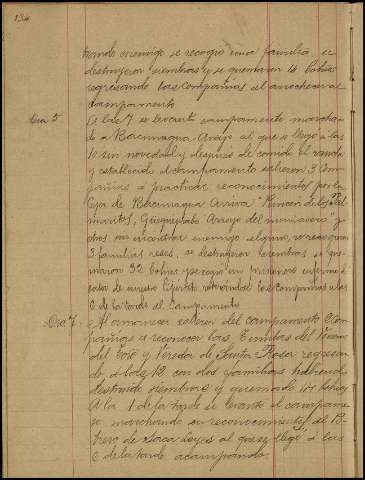 134
trando enemigo se recogió una familia se
destruyeron siembras y se quemaron 14 bohios
regresando las compañias al anochecer al
campamento
Dia 5 A las 7 se levantó campamento marchando
a Bacunagua Abajo al que se llegó a las
10 sin novedad y despues de comido el rancho
y establecido el campamento salieron 3 Com-
pañias a practicar reconocimientos por la
Ceja de Bacunagua Arriva "Rincon de los Pal-
maritos, Arroyo del
otros sin encontrar enemigo alguno, se recogieron
3 familias reses, se destruyeron siembras se que-
maron 32 bohios y se cogió un enfermo
de nuestro Ejército retirandose las compañias a las
6 de la tarde al Campamento
Dia 7 Al amanecer salieron del campamento Com-
pañias a reconocer las del
del y Vereda de Santa Rosa regresan-
do a las 12 con dos familias habiendo
destruido siembras y quemado 107 bohios
A la 1 de la tarde se levantó el campamen-
to marchando en reconocimiento al Po-
trero de al que se llegó a las
6 de la tarde acampando.